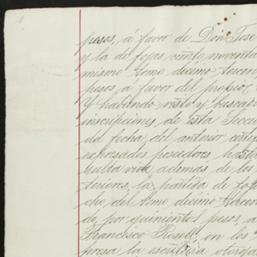 pesos, á favor de Don José
y la de fojas veinte noventa
mismo tomo décimo tercero
pesos, á favor del propio
Y habiendo visto y buscado
inscripciones de esta Secció
da fecha, del anterior certif
expresados poseedores hasta
sulta viva, además de los
teriores, la partida de foja
cho, del tomo décimo tercero
do, por quinientos pesos, a
Francisco Rosell, en los
presa la escritura otorga